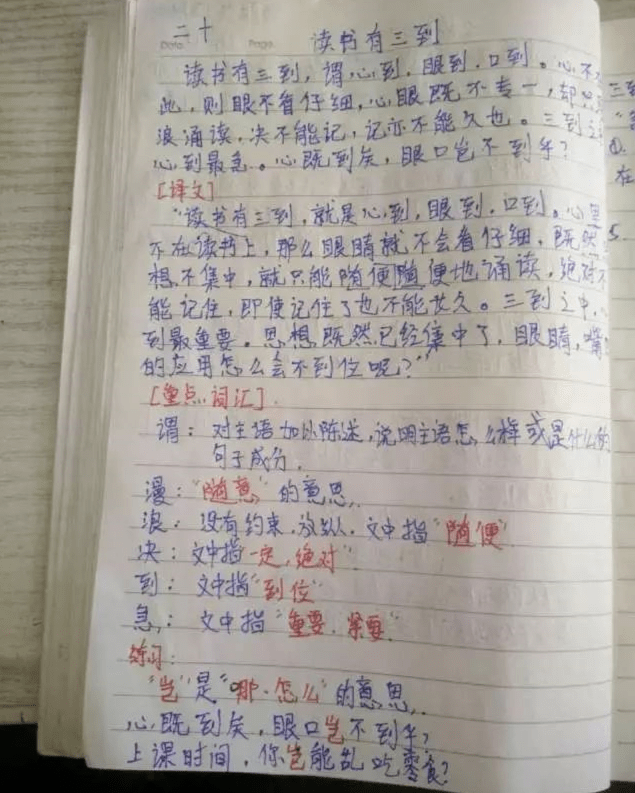 二十 读书有三到
Date. Page.
读书有三到,谓心到,眼到,口到。心不
此,则眼不看仔细,心眼既不专一,却只
浪诵读,决不能记,记亦不能久也。三到之
心到最急。心既到矣,眼口岂不到乎?
[译文]
“读书有三到,就是心到,眼到,口到。心思
不在读书上,那么眼睛就不会看仔细,既然
想不集中,就只能随便随便地诵读,绝对不
能记住,即使记住了也不能长久。三到之中,
到最重要。思想既然已经集中了,眼睛,嘴
的应用怎么会不到位呢?”
[重点词汇]
谓:对主语加以陈述,说明主语怎么样或是什么的
句子成分.
漫:“随意”的意思.
浪:没有约束,放纵,文中指“随便”
决:文中指一定,绝对”
到:文中指“到位”
急:文中指“重要.紧要”
练习:
“岂”是“哪·怎么”的意思.
心既到矣,眼口岂不到乎?
上课时间,你岂能乱吃零食?
三到
①.
在
5.